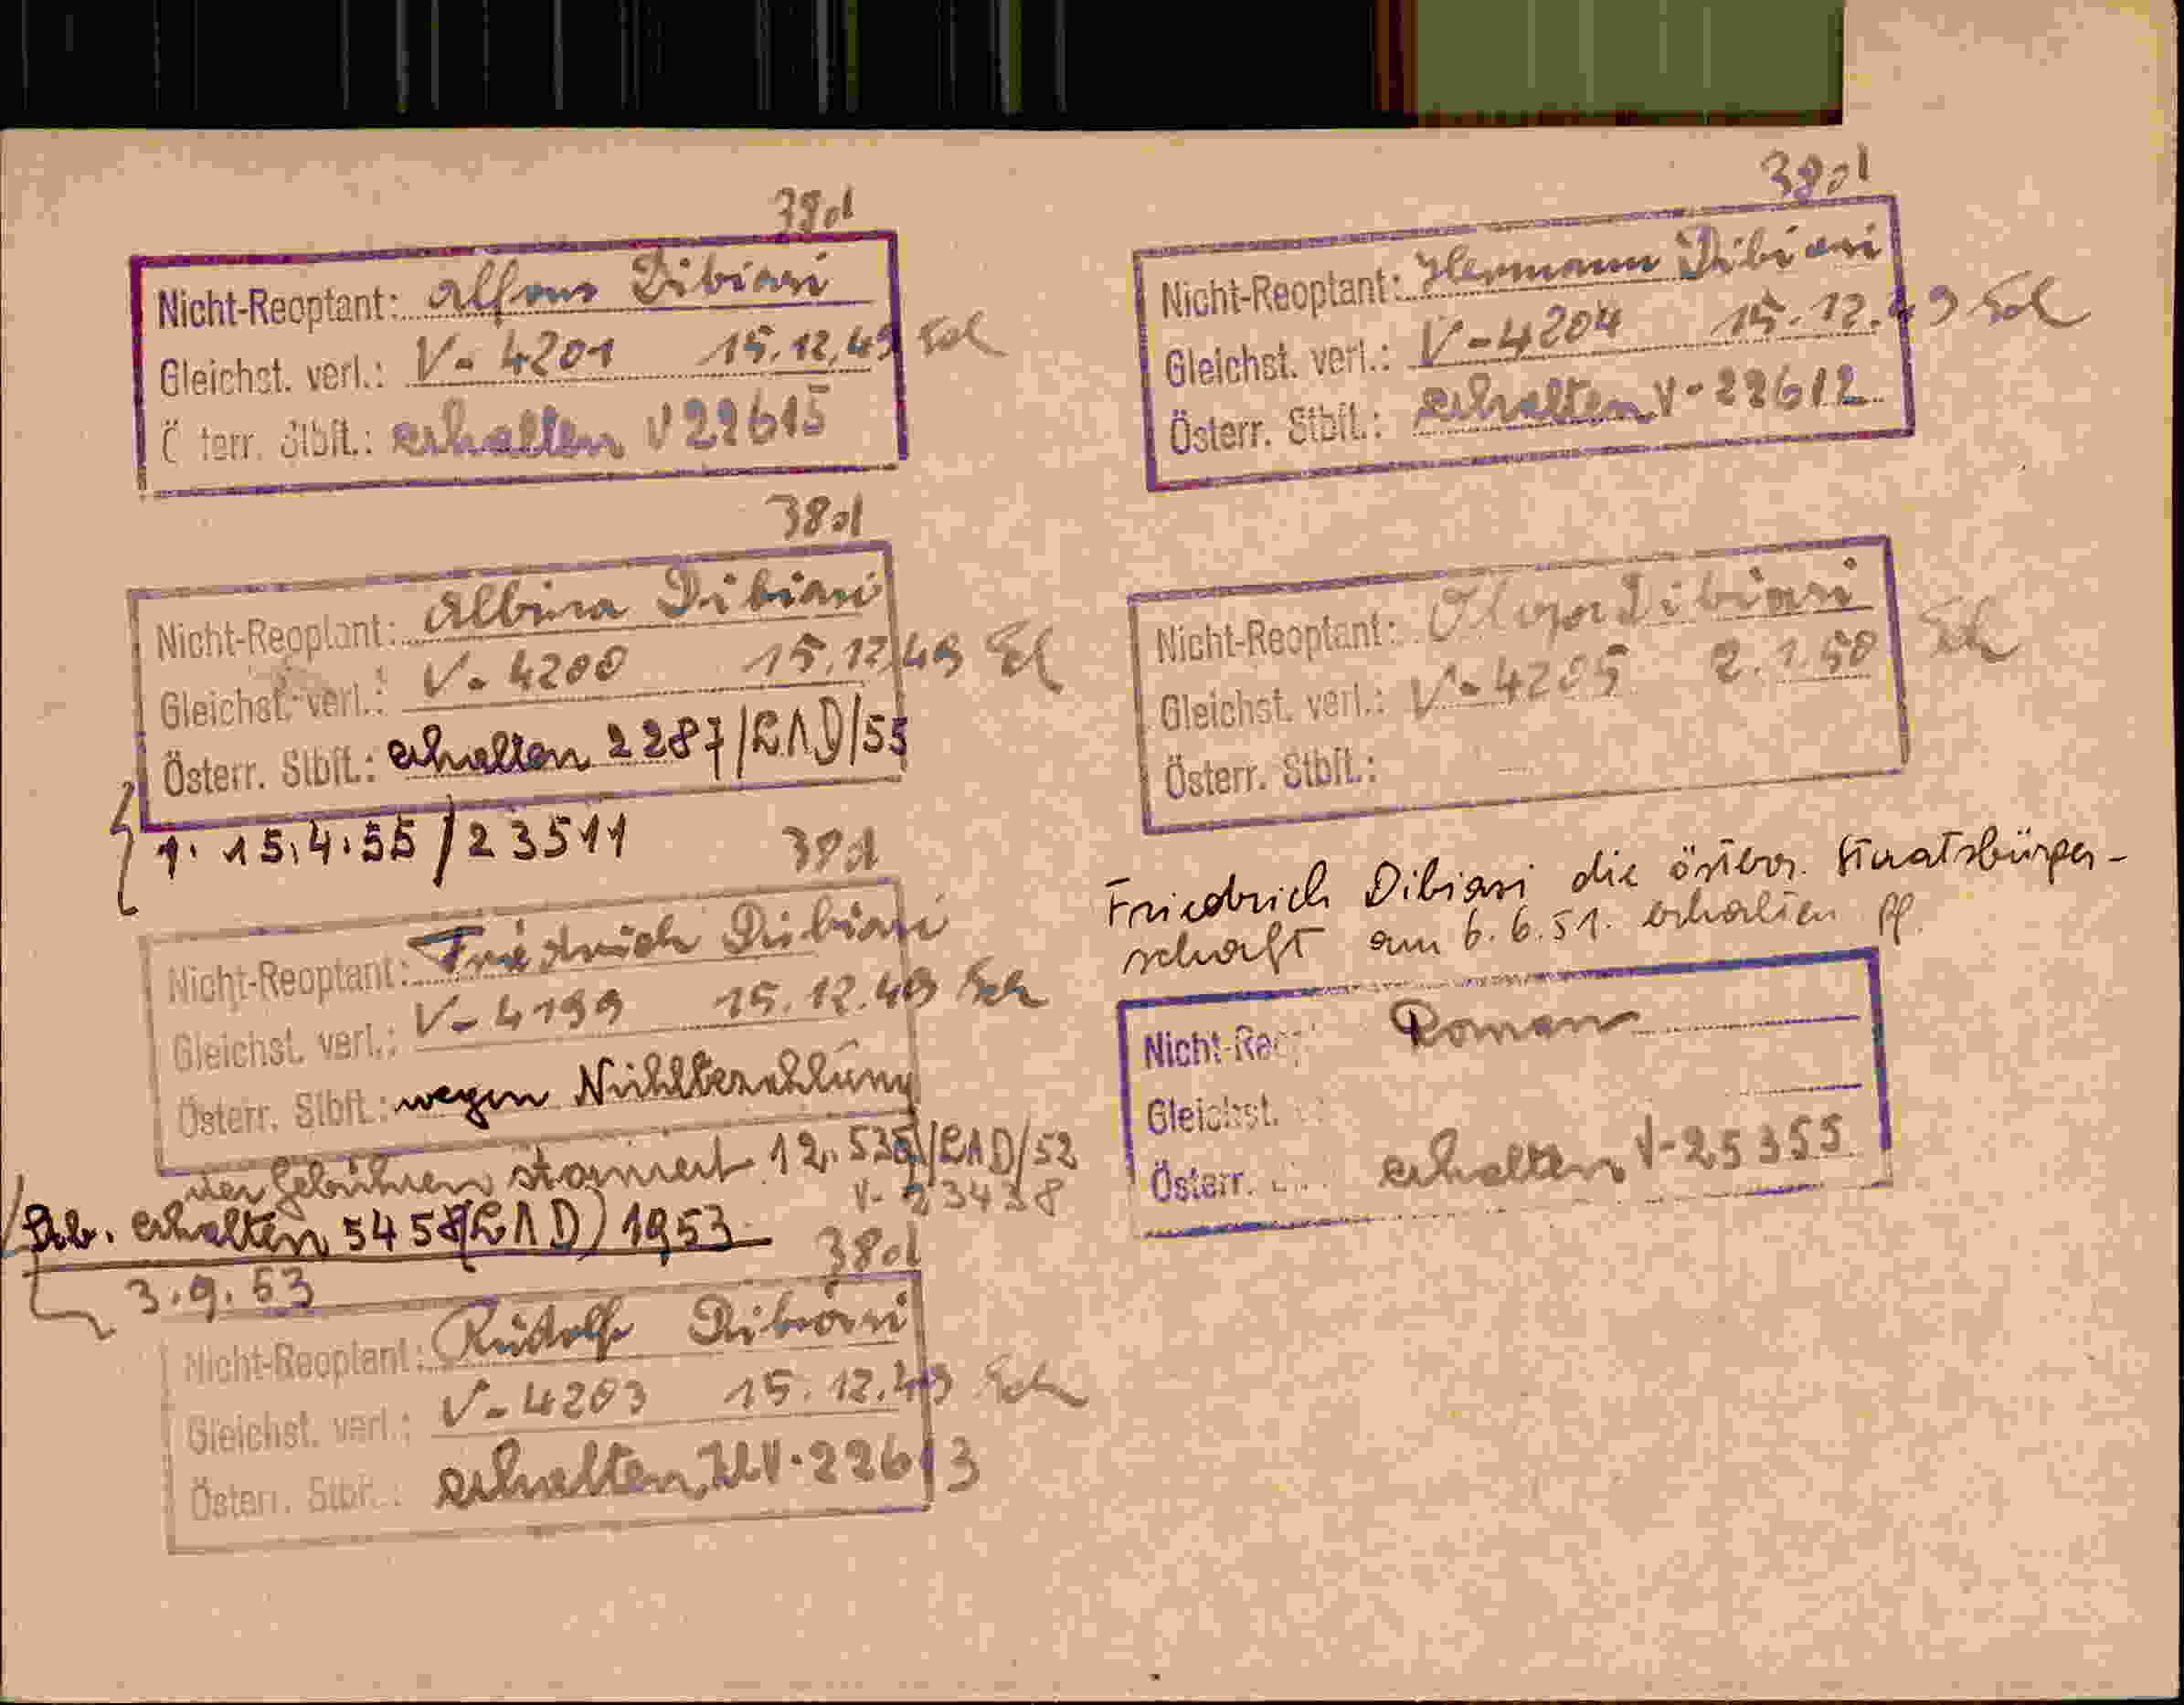 38d
Nicht-Reoptant: Alfons Dibiasi
Gleichst. verl.: V-4201 15.12.49
terr. Stbft.: erhalten V 22615
38d
Nicht-Reoptant: Albina Dibiasi
Gleichst. verl.: V-4200 15.12.49
Österr. Stbft.: erhalten 2287/LAD/55
1. 15.4.55/23511
38d
Nicht-Reoptant: Friedrich Dibiasi
Gleichst. verl.: V-4199 15.12.49
Österr. Stbft.: wegen Nichtbezahlung
der Gebühren storniert 12. /LAD/52
V-23438
Stb. erhalten 5458(LAD) 1953
3.9.53
38d
Nicht-Reoptant: Rudolf Dibiasi
Gleichst. verl.: V-4203 15.12.49
Österr. Stbft.: erhalten V-22613
38d
Nicht-Reoptant: Hermann Dibiasi
Gleichst. verl.: V-4204 15.12.49
Österr. Stbft.: erhalten V-22612
Nicht-Reoptant: Olga Dibiasi
Gleichst. verl.: V-4205 2.1.50
Österr. Stbft.:
Friedrich Dibiasi die österr. Staatsbürger-
schaft am 6.6.51. erhalten
Nicht-Reo Roman
Gleichst.
Österr. erhalten V-25355